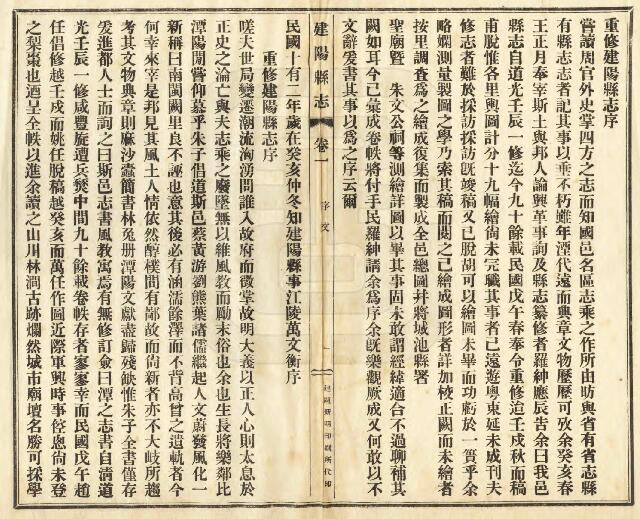 重修建陽縣志序
嘗讀周官外史掌四方之志而知國邑名區志乘之作所由昉與省有省志縣
有縣志志者記其事以垂不朽雖年湮代遠而典章文物歷歷可攷余癸亥春
王正月奉宰斯土與邦人論興革事詢及縣志纂修者羅紳應辰告余曰我邑
縣志自道光壬辰一修迄今九十餘載民國戊午春奉令重修迨壬戌秋而稿
甫脫惟各里輿圖計分十九幅繪尚未完職其事者已遠遊粵東延未成刊夫
修志者難於採訪採訪旣竣稿又已脫胡可以繪圖未畢而功虧於一簣乎余
略嫻測量製圖之學乃索其稿而閱之已繪成圖形者詳加校正闕而未繪者
按里調查爲之繪成復集而製成全邑總圖幷將城池縣署
聖廟暨 朱文公祠等測繪詳圖以畢其事固未敢謂經緯適合不過聊補其
闕如耳今已彙成卷帙將付手民羅紳請余爲序余旣樂觀厥成又何敢以不
文辭爰書其事以爲之序云爾
民國十有二年歲在癸亥仲冬知建陽縣事江陵萬文衡序
建陽縣志
卷一
序文
一
重修建陽縣志序
嗟夫世局變遷潮流洶湧問誰入故府而徵掌故明大義以正人心則太息於
正史之淪亡與夫志乘之廢墜無以維風教而勵末俗也余也生長將樂鄰比
潭陽閒嘗仰慕乎朱子倡道斯邑蔡黃游劉熊葉諸儒繼起人文蔚發風化一
新稱曰南閩闕里良不誣也意其後必有涵濡餘澤而不背高曾之遺軌者今
何幸來宰是邦見其風土人情依然醇樸間有鄙故而尙新者亦不大岐所趨
考其文物典章則麻沙蠹簡書林兔册潭陽文獻盡歸殘缺惟朱子全書僅存
爰進都人士而詢之曰斯邑志書風教寓焉有無修訂僉曰潭之志書自淸道
光壬辰一修咸豐旋遭兵燹中間九十餘載卷帙存者寥寥幸而民國戊午趙
任倡修越壬戌而姚任脫稿越癸亥而萬任作圖近際軍興時事倥傯尙未登
之梨棗也迺呈全帙以進余讀之山川林澗古跡爛然城市廟壇名勝可採學